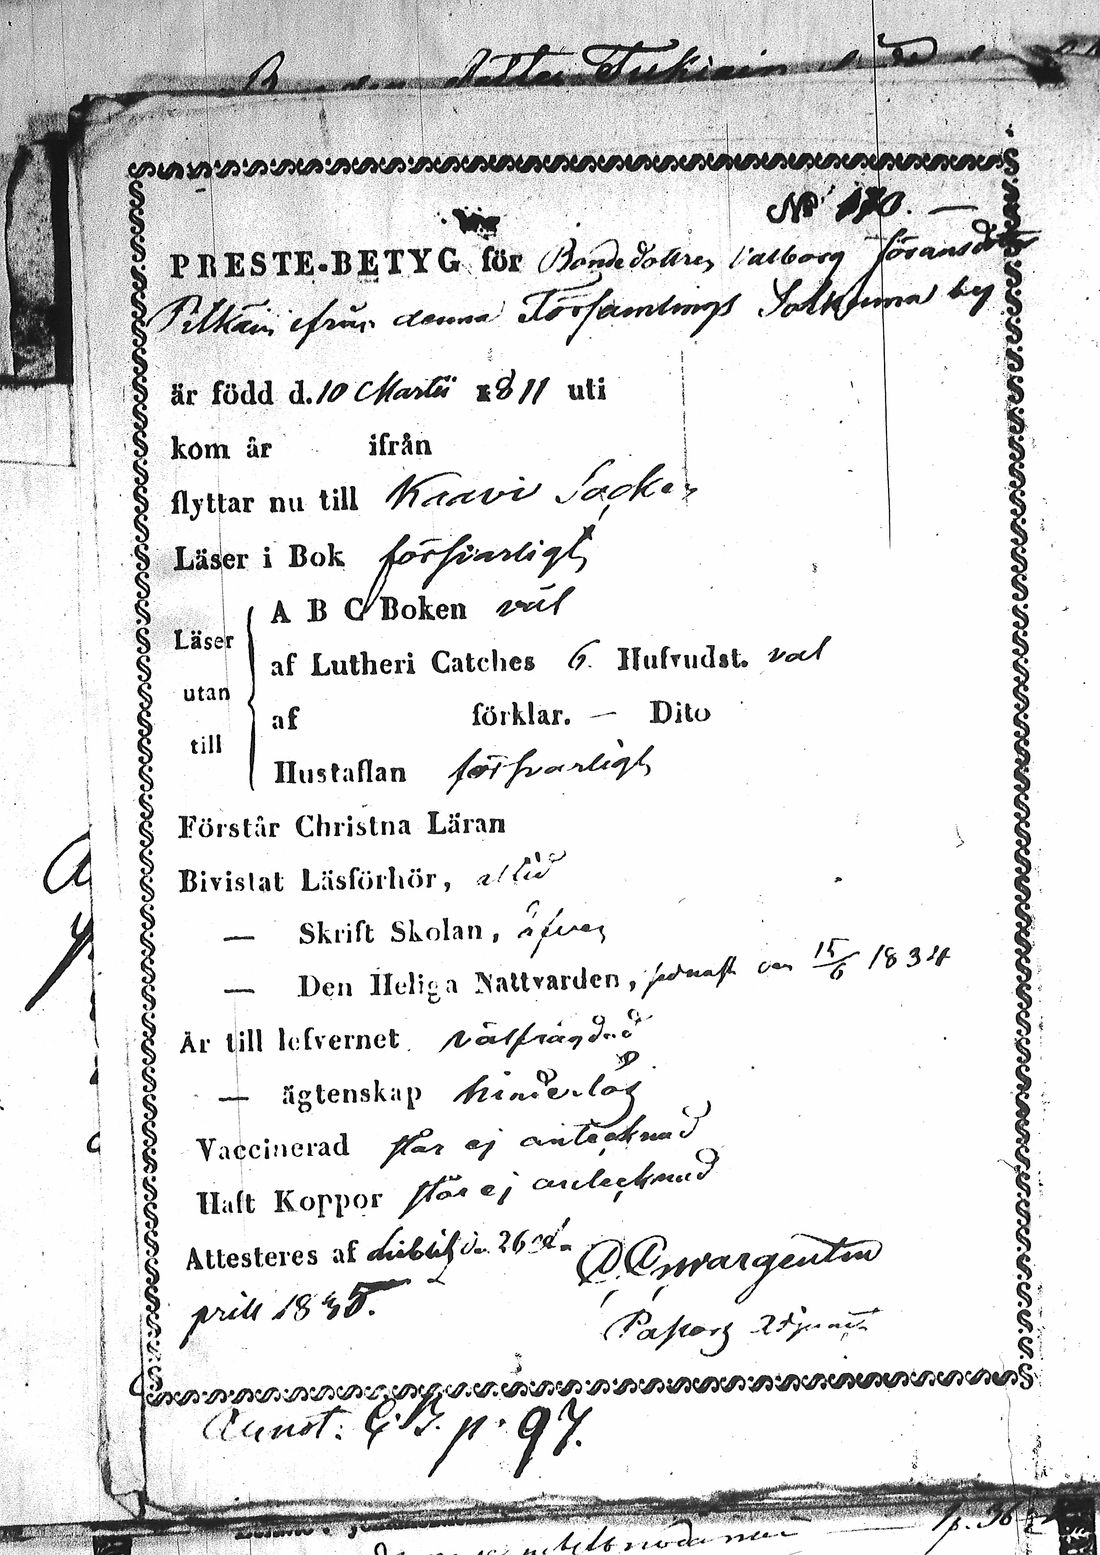 No 170. —
PRESTE-BETYG för Bondedottren Valborg Göransdotter
Pitkäin ifrån denna Församlings by
är född d. 10 Martii 1811 uti
kom år ifrån
flyttar nu till Kaavi Socken
Läser i Bok försvarligt
A B C Boken väl
Läser
af Lutheri Catches 6. Hufvudst. väl
utan
af förklar. — Dito
till
Hustaflan försvarligt
Förstår Christna Läran
Bivistat Läsförhör, altid
— Skrift Skolan, äfven
— Den Heliga Nattvarden, senast den 15/6 1834
Är till lefvernet välfrägdad
— ägtenskap hinderlös
Vaccinerad står ej antecknad
Haft Koppor står ej antecknad
Attesteres af Libelitz den 26 A-
pril 1835. Wargentin
Pastors Adjunct
Annot. C.B. p. 97.
p. 36